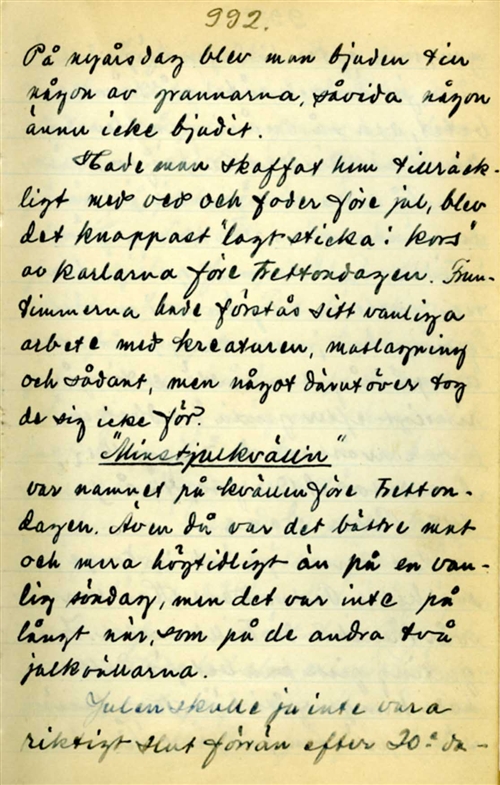 992.
På nyårsdag blev man bjuden till
någon av grannarna, såvida någon
ännu icke bjudit.
Hade man skaffat hem tillräck-
ligt med ved och foder före jul, blev
det knappast "lagt sticka i kors"
av karlarna före Trettondagen. Frun-
timmerna hade förstås sitt vanliga
arbete med kreaturen, matlagning
och sådant, men något därutöver tog
de sig icke för.
"Minstjulkvällin"
var namnet på kvällen före Tretton-
dagen. Även då var det bättre mat
och mera högtidligt än på en van-
lig söndag, men det var inte på
långt när, som på de andra två
julkvällarna.
Julen skulle ju inte vara
riktigt slut förrän efter 20:e da-